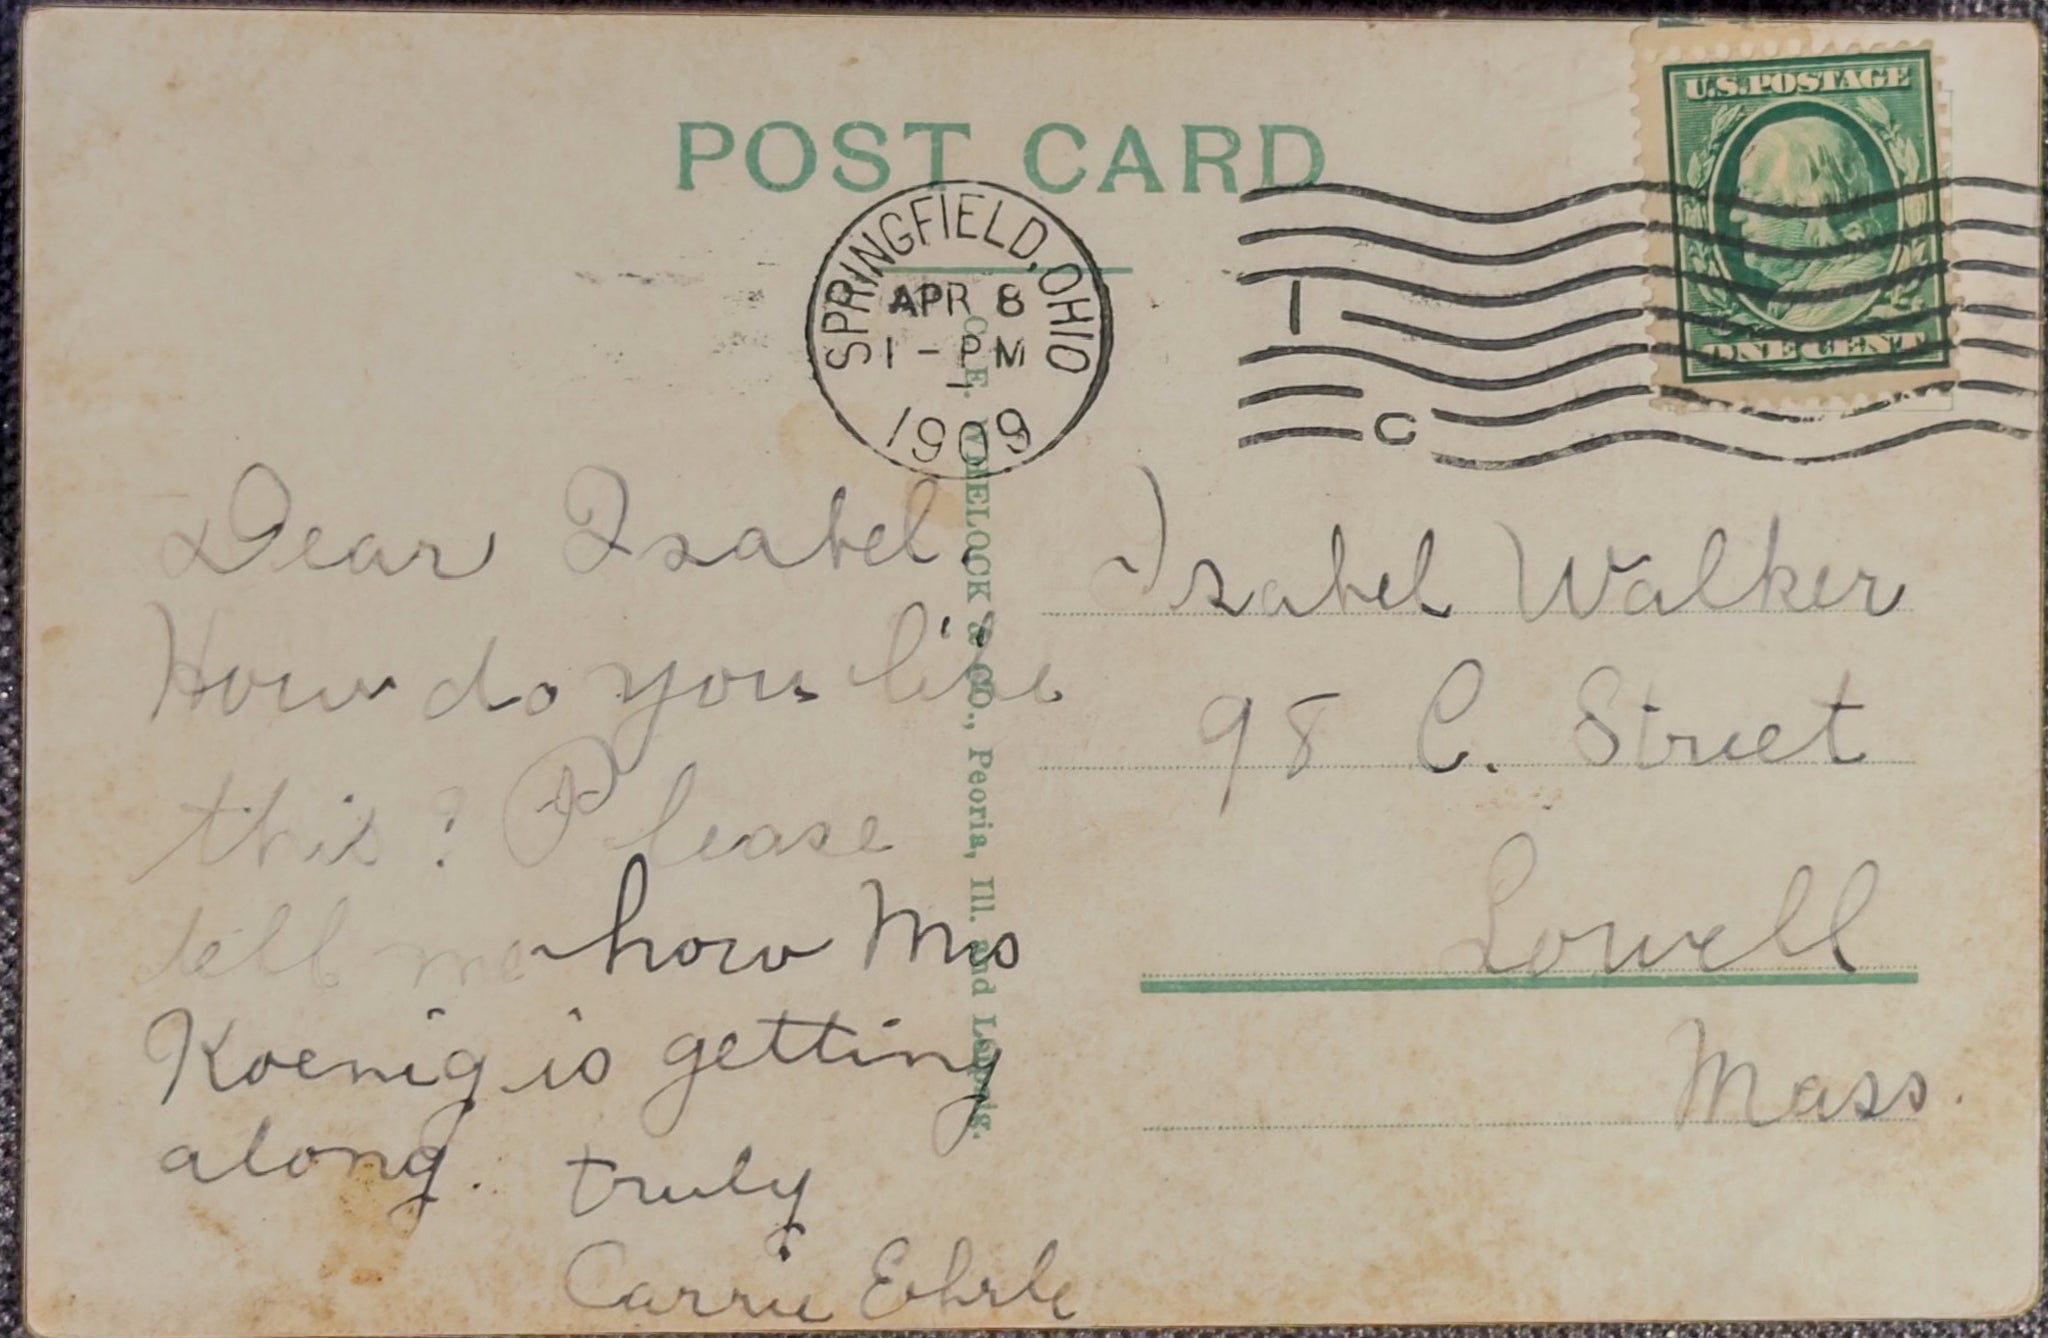 U.S.POSTAGE
ONE CENT
POST CARD
SPRINGFIELD, OHIO
APR 8
1 - PM
1909
1
C
C. E. WHEELOCK & CO., Peoria, Ill. and Leipzig.
Dear Isabel,
How do you like
this? Please
tell me how Mrs
Koenig is getting
along.
truly
Carrie Ehrle
Isabel Walker
98 C. Street
Lowell
Mass.